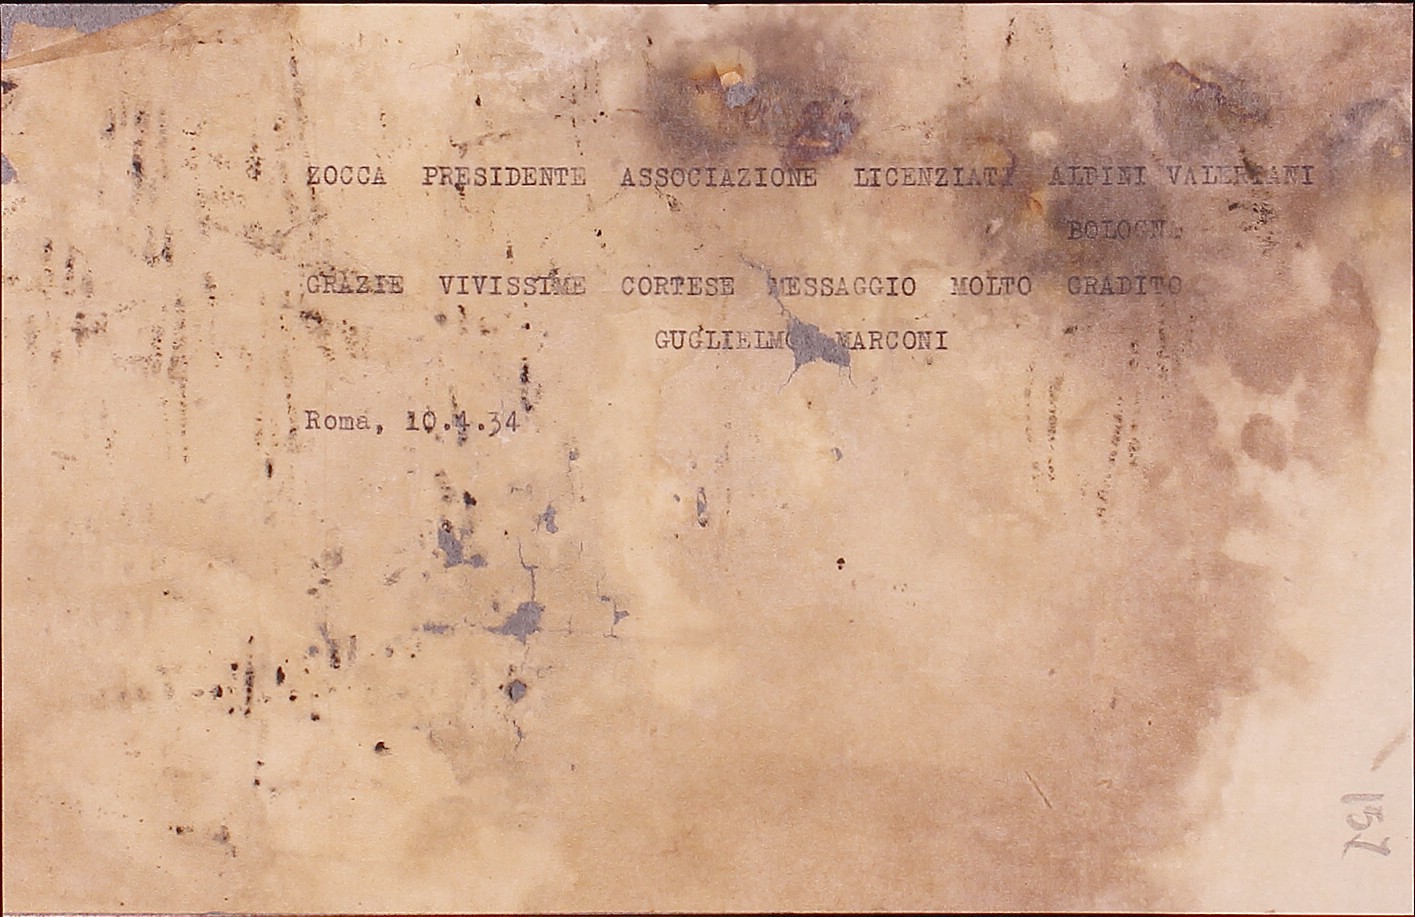 ZOCCA PRESIDENTE ASSOCIAZIONE LICENZIATI ALDINI VALERIANI
BOLOGNA
GRAZIE VIVISSIME CORTESE MESSAGGIO MOLTO GRADITO
GUGLIELMO MARCONI
Roma, 10.4.34
151